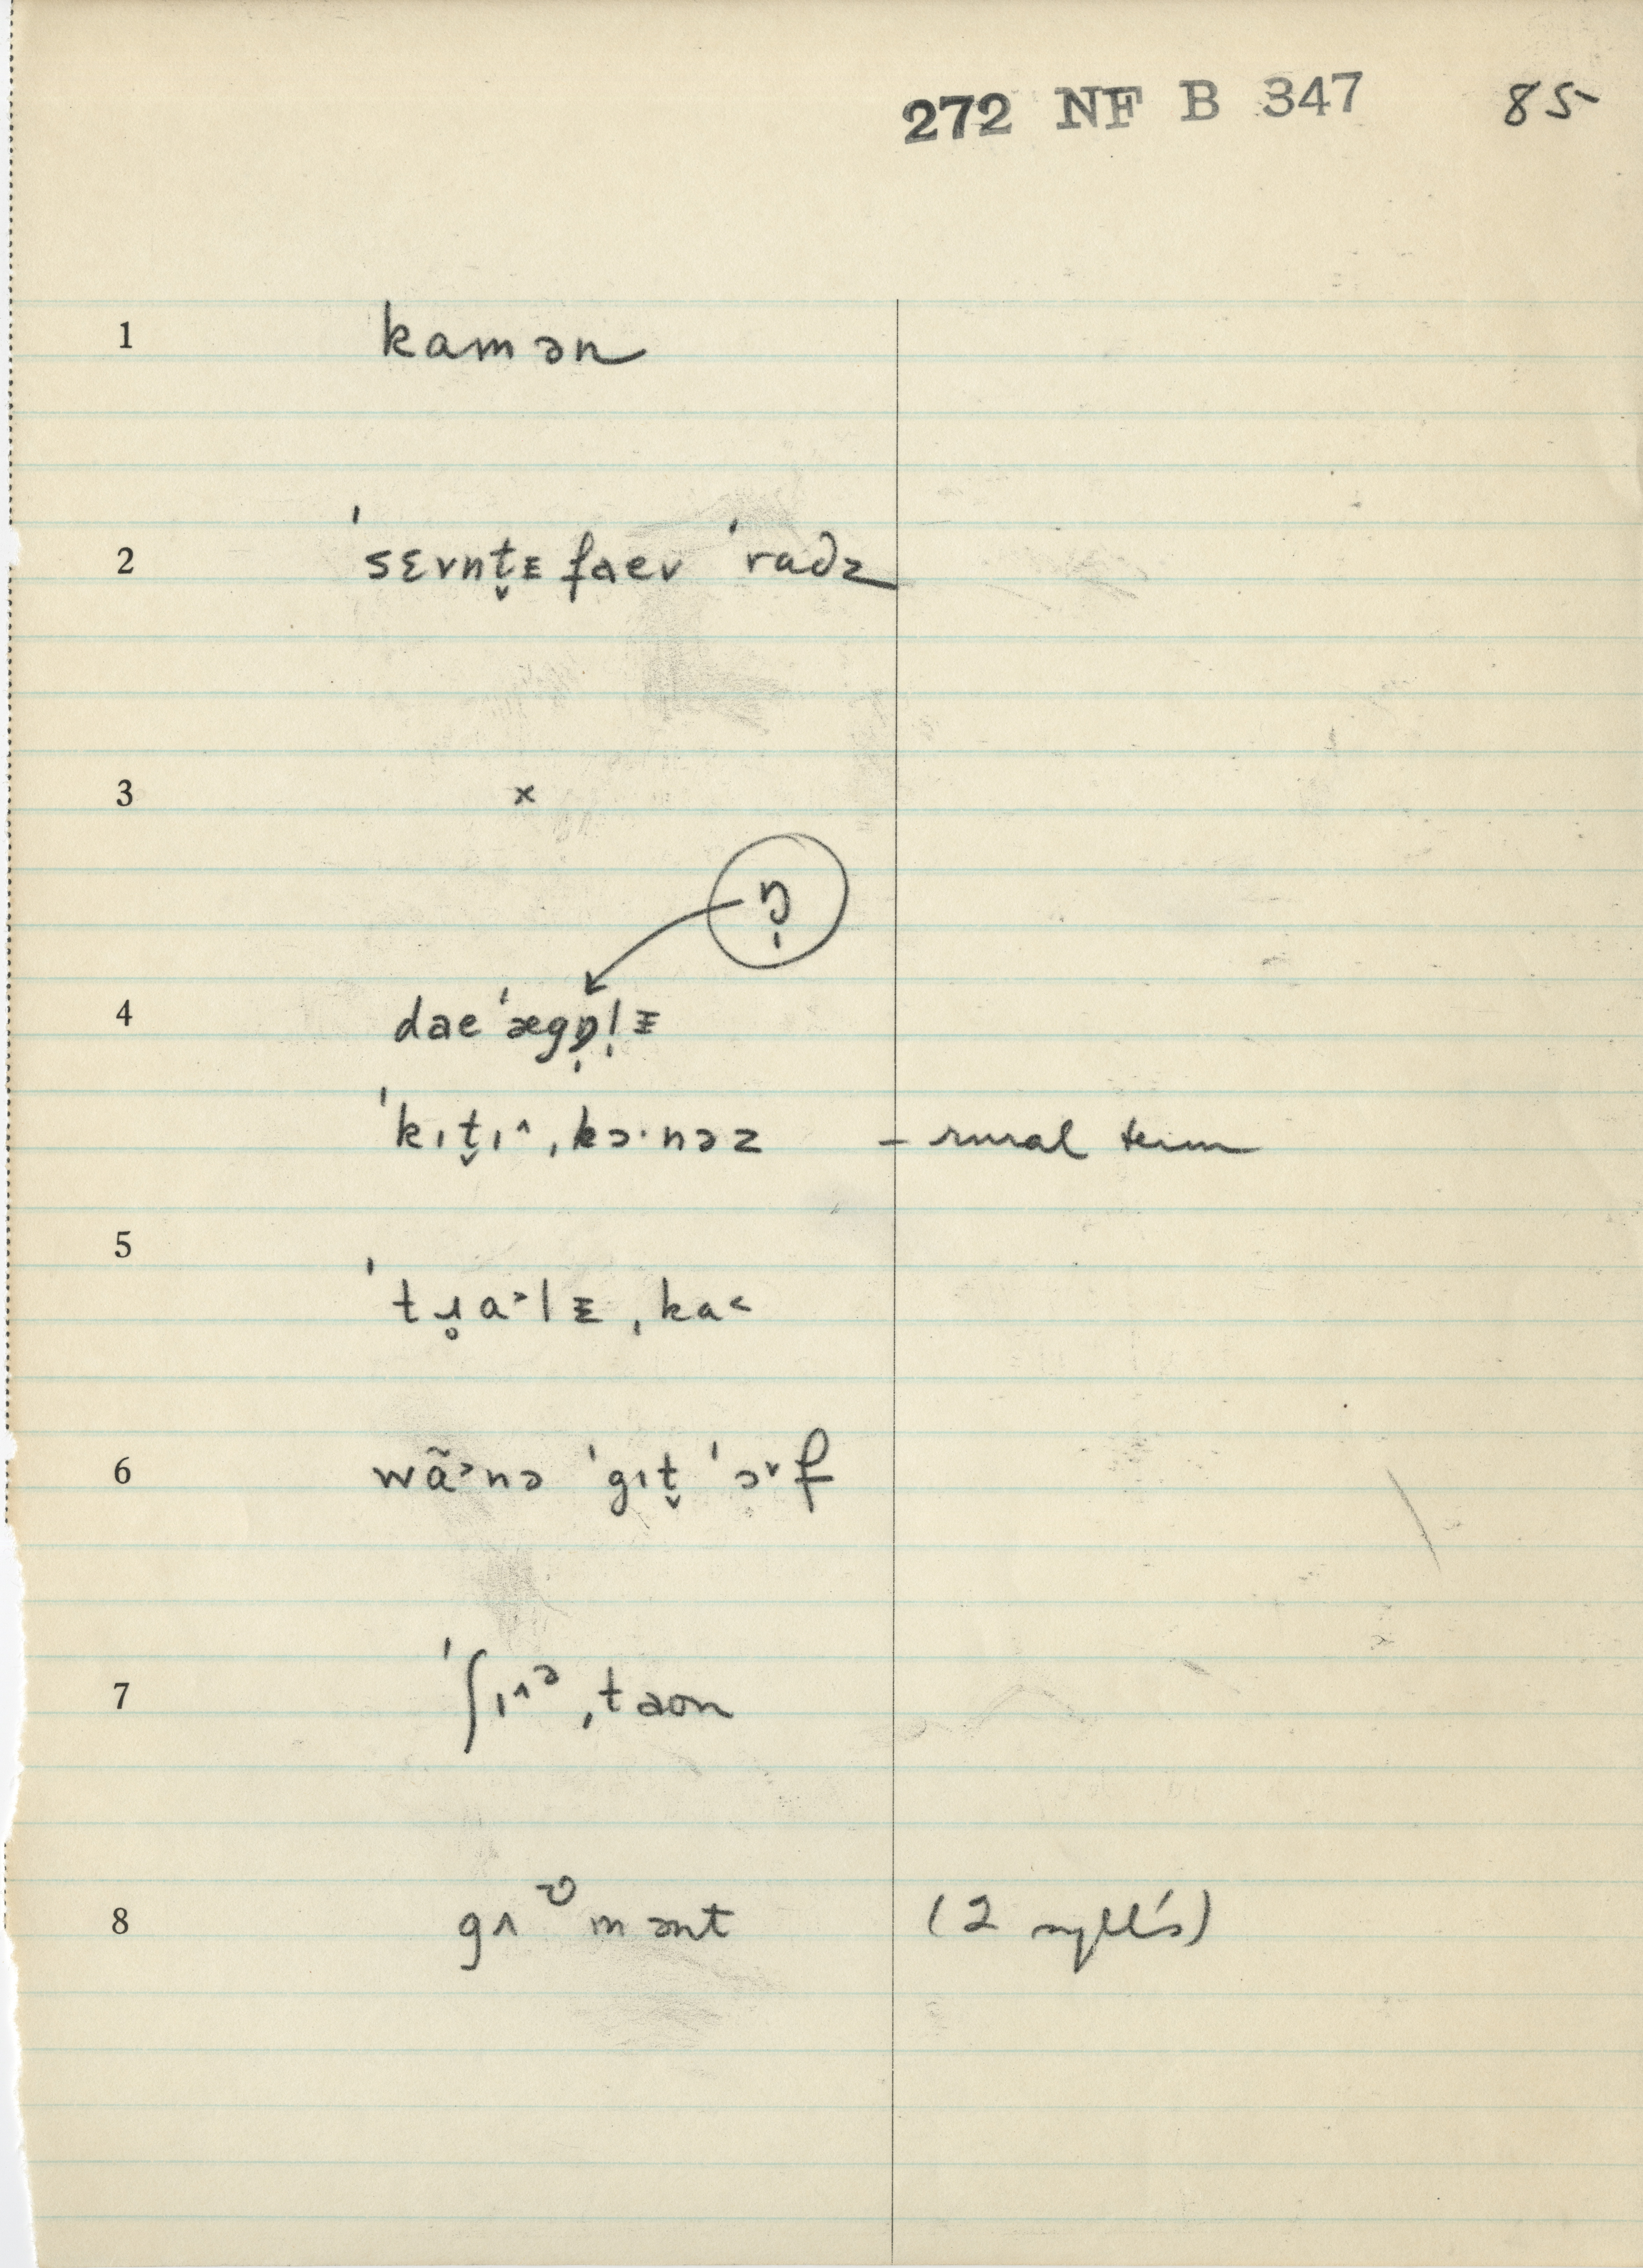 272 NF B 347 85
1 kamən
2 ˈsɛvnt̬ɪ faev ˈradz
3 x
ŋ̩
4 daeˈægŋ̩l̩ɪ
ˈkɪt̬ɪ^ˌkɔ·nəz – rural term
5 ˈtɹ̥a˃lɪˌka˂
6 wã˃nə ˈgɪt̬ ˈɔ˅f
7 ˈʃɪ^ᵊˌtaon
8 gʌᶷmənt (2 syll's)